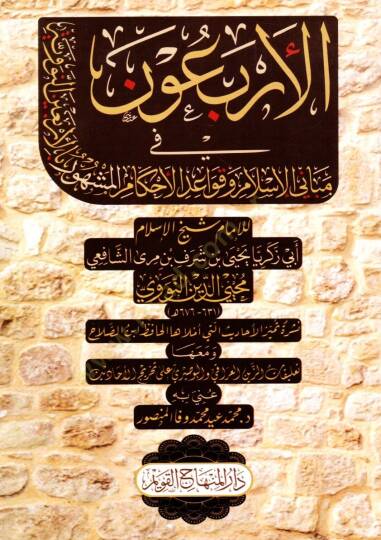 الأربعون
في
مباني الإسلام وقواعد الأحكام المشهور بالأربعين النووية
للإمام شيخ الإسلام
أبي زكريا يحيى بن شرف بن مري الشافعي
محيي الدين النووي
(٦٣١-٦٧٦هـ)
نشرة تميز الأحاديث التي أملاها الحافظ ابن الصلاح
ومعها
تعليقات الزين العراقي والبوصيري على تخريج الأحاديث
عني به
د. محمد عيد محمد وفا المنصور
دار المنهاج القويم